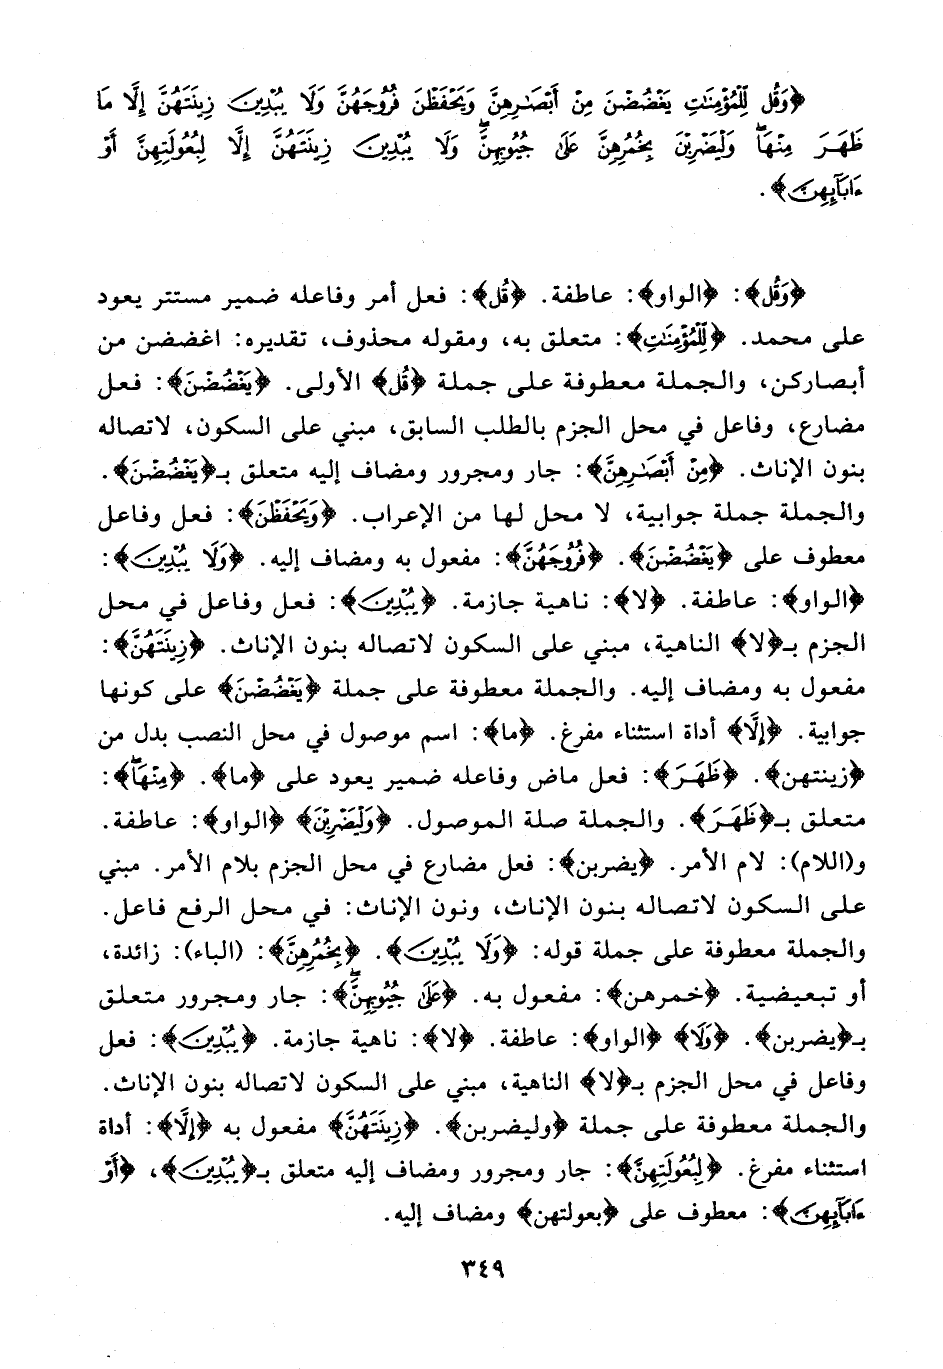 ﴿وَقُل لِّلْمُؤْمِنَٰتِ يَغْضُضْنَ مِنْ أَبْصَٰرِهِنَّ وَيَحْفَظْنَ فُرُوجَهُنَّ وَلَا يُبْدِينَ زِينَتَهُنَّ إِلَّا مَا
ظَهَرَ مِنْهَاۖ وَلْيَضْرِبْنَ بِخُمُرِهِنَّ عَلَىٰ جُيُوبِهِنَّۖ وَلَا يُبْدِينَ زِينَتَهُنَّ إِلَّا لِبُعُولَتِهِنَّ أَوْ
ءَابَآئِهِنَّ﴾.
﴿وَقُل﴾: ﴿الواو﴾: عاطفة. ﴿قُل﴾: فعل أمر وفاعله ضمير مستتر يعود
على محمد. ﴿لِّلْمُؤْمِنَٰتِ﴾: متعلق به، ومقوله محذوف، تقديره: اغضضن من
أبصاركن، والجملة معطوفة على جملة ﴿قُل﴾ الأولى. ﴿يَغْضُضْنَ﴾: فعل
مضارع، وفاعل في محل الجزم بالطلب السابق، مبني على السكون، لاتصاله
بنون الإناث. ﴿مِنْ أَبْصَٰرِهِنَّ﴾: جار ومجرور ومضاف إليه متعلق بـ﴿يَغْضُضْنَ﴾.
والجملة جملة جوابية، لا محل لها من الإعراب. ﴿وَيَحْفَظْنَ﴾: فعل وفاعل
معطوف على ﴿يَغْضُضْنَ﴾. ﴿فُرُوجَهُنَّ﴾: مفعول به ومضاف إليه. ﴿وَلَا يُبْدِينَ﴾:
﴿الواو﴾: عاطفة. ﴿لا﴾: ناهية جازمة. ﴿يُبْدِينَ﴾: فعل وفاعل في محل
الجزم بـ﴿لا﴾ الناهية، مبني على السكون لاتصاله بنون الإناث. ﴿زِينَتَهُنَّ﴾:
مفعول به ومضاف إليه. والجملة معطوفة على جملة ﴿يَغْضُضْنَ﴾ على كونها
جوابية. ﴿إِلَّا﴾ أداة استثناء مفرغ. ﴿ما﴾: اسم موصول في محل النصب بدل من
﴿زينتهن﴾. ﴿ظَهَرَ﴾: فعل ماض وفاعله ضمير يعود على ﴿ما﴾. ﴿مِنْهَاۖ﴾:
متعلق بـ﴿ظَهَرَ﴾. والجملة صلة الموصول. ﴿وَلْيَضْرِبْنَ﴾ ﴿الواو﴾: عاطفة.
و(اللام): لام الأمر. ﴿يضربن﴾: فعل مضارع في محل الجزم بلام الأمر. مبني
على السكون لاتصاله بنون الإناث، ونون الإناث: في محل الرفع فاعل.
والجملة معطوفة على جملة قوله: ﴿وَلَا يُبْدِينَ﴾. ﴿بِخُمُرِهِنَّ﴾: (الباء): زائدة،
أو تبعيضية. ﴿خمرهن﴾: مفعول به. ﴿عَلَىٰ جُيُوبِهِنَّۖ﴾: جار ومجرور متعلق
بـ﴿يضربن﴾. ﴿وَلَا﴾ ﴿الواو﴾: عاطفة. ﴿لا﴾: ناهية جازمة. ﴿يُبْدِينَ﴾: فعل
وفاعل في محل الجزم بـ﴿لا﴾ الناهية، مبني على السكون لاتصاله بنون الإناث.
والجملة معطوفة على جملة ﴿وليضربن﴾. ﴿زِينَتَهُنَّ﴾ مفعول به ﴿إِلَّا﴾: أداة
استثناء مفرغ. ﴿لِبُعُولَتِهِنَّ﴾: جار ومجرور ومضاف إليه متعلق بـ﴿يُبْدِينَ﴾، ﴿أَوْ
ءَابَآئِهِنَّ﴾: معطوف على ﴿بعولتهن﴾ ومضاف إليه.
٣٤٩